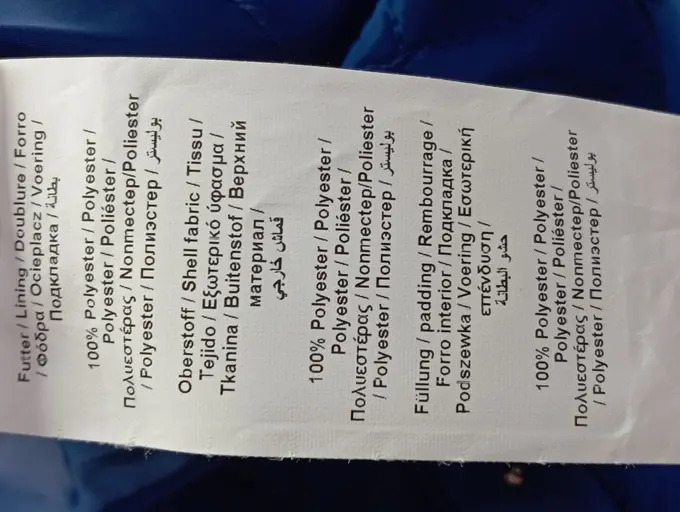 Futter / Lining / Doublure / Forro
/ Φόδρα / Ocieplacz / Voering /
Подкладка / بطانة
100% Polyester / Polyester /
Polyester / Poliéster /
Πολυεστέρας / Nonmecтep/Poliester
/ Polyester / Полиэстер / بوليستر
Oberstoff / Shell fabric / Tissu /
Tejido / Εξωτερικό ύφασμα /
Tkanina / Buitenstof / Верхний
материал /
قماش خارجي
100% Polyester / Polyester /
Polyester / Poliéster /
Πολυεστέρας / Nonmecтep/Poliester
/ Polyester / Полиэстер / بوليستر
Füllung / padding / Rembourrage /
Forro interior / Подкладка /
Podszewka / Voering / Εσωτερική
επένδυση /
حشو البطانة
100% Polyester / Polyester /
Polyester / Poliéster /
Πολυεστέρας / Nonmecтep/Poliester
/ Polyester / Полиэстер / بوليستر